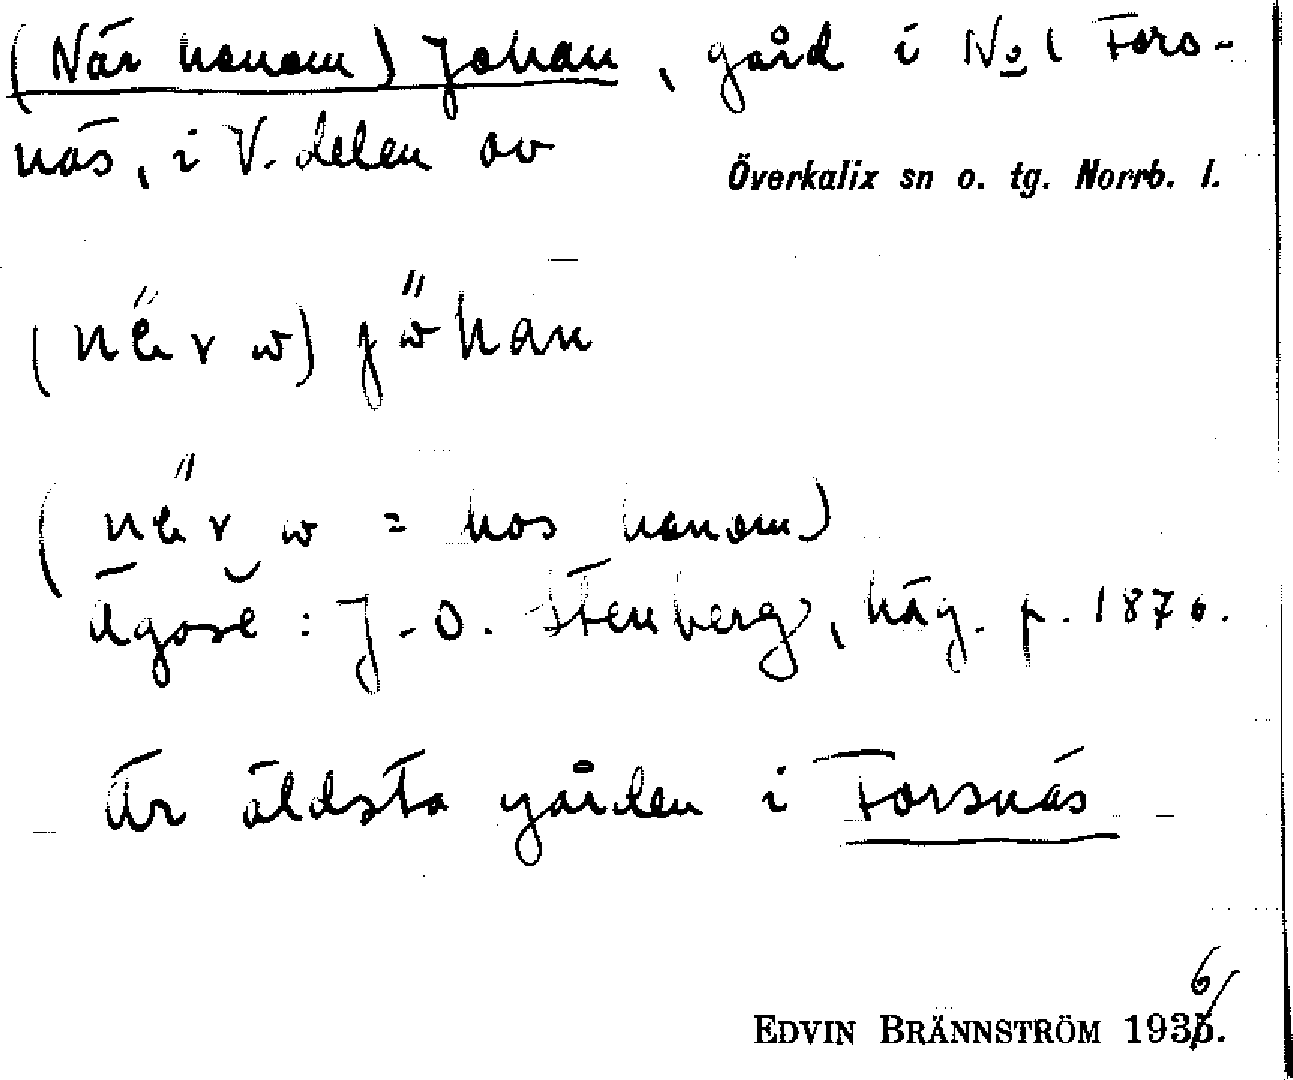 (När honom) Johan, gård i No 1 Fors-
näs, i V. delen av
Överkalix sn o. tg. Norrb. l.
(när w) jẅhan
(när w = hos honom)
Ägare: J.O. Stenberg, häg. p. 1876.
Är äldsta gården i Forsnäs
6
EDVIN BRÄNNSTRÖM 1935.